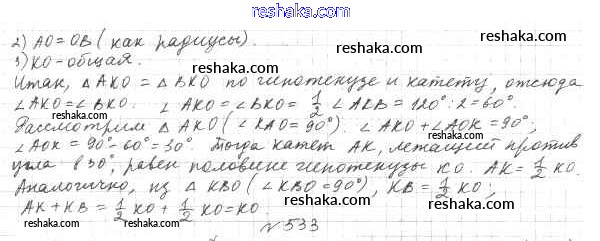 reshaka.com
2) AO = OB (как радиусы).
3) KO - общая.
Итак, △ AKO = △ BKO по гипотенузе и катету, отсюда
∠AKO = ∠BKO. ∠ AKO = ∠BKO = 1/2 ∠AKB = 120° : 2 = 60°.
Рассмотрим △ AKO (∠KAO = 90°). ∠ AKO + ∠AOK = 90°,
∠AOK = 90° - 60° = 30°. Тогда катет AK, лежащий против
угла в 30°, равен половине гипотенузы KO. AK = 1/2 KO.
Аналогично, из △ KBO (∠KBO = 90°), KB = 1/2 KO;
AK + KB = 1/2 KO + 1/2 KO = KO.
№533
reshaka.com
reshaka.com
reshaka.com
reshaka.com
reshaka.com
reshaka.com
reshaka.com
reshaka.com
reshaka.com
reshaka.com